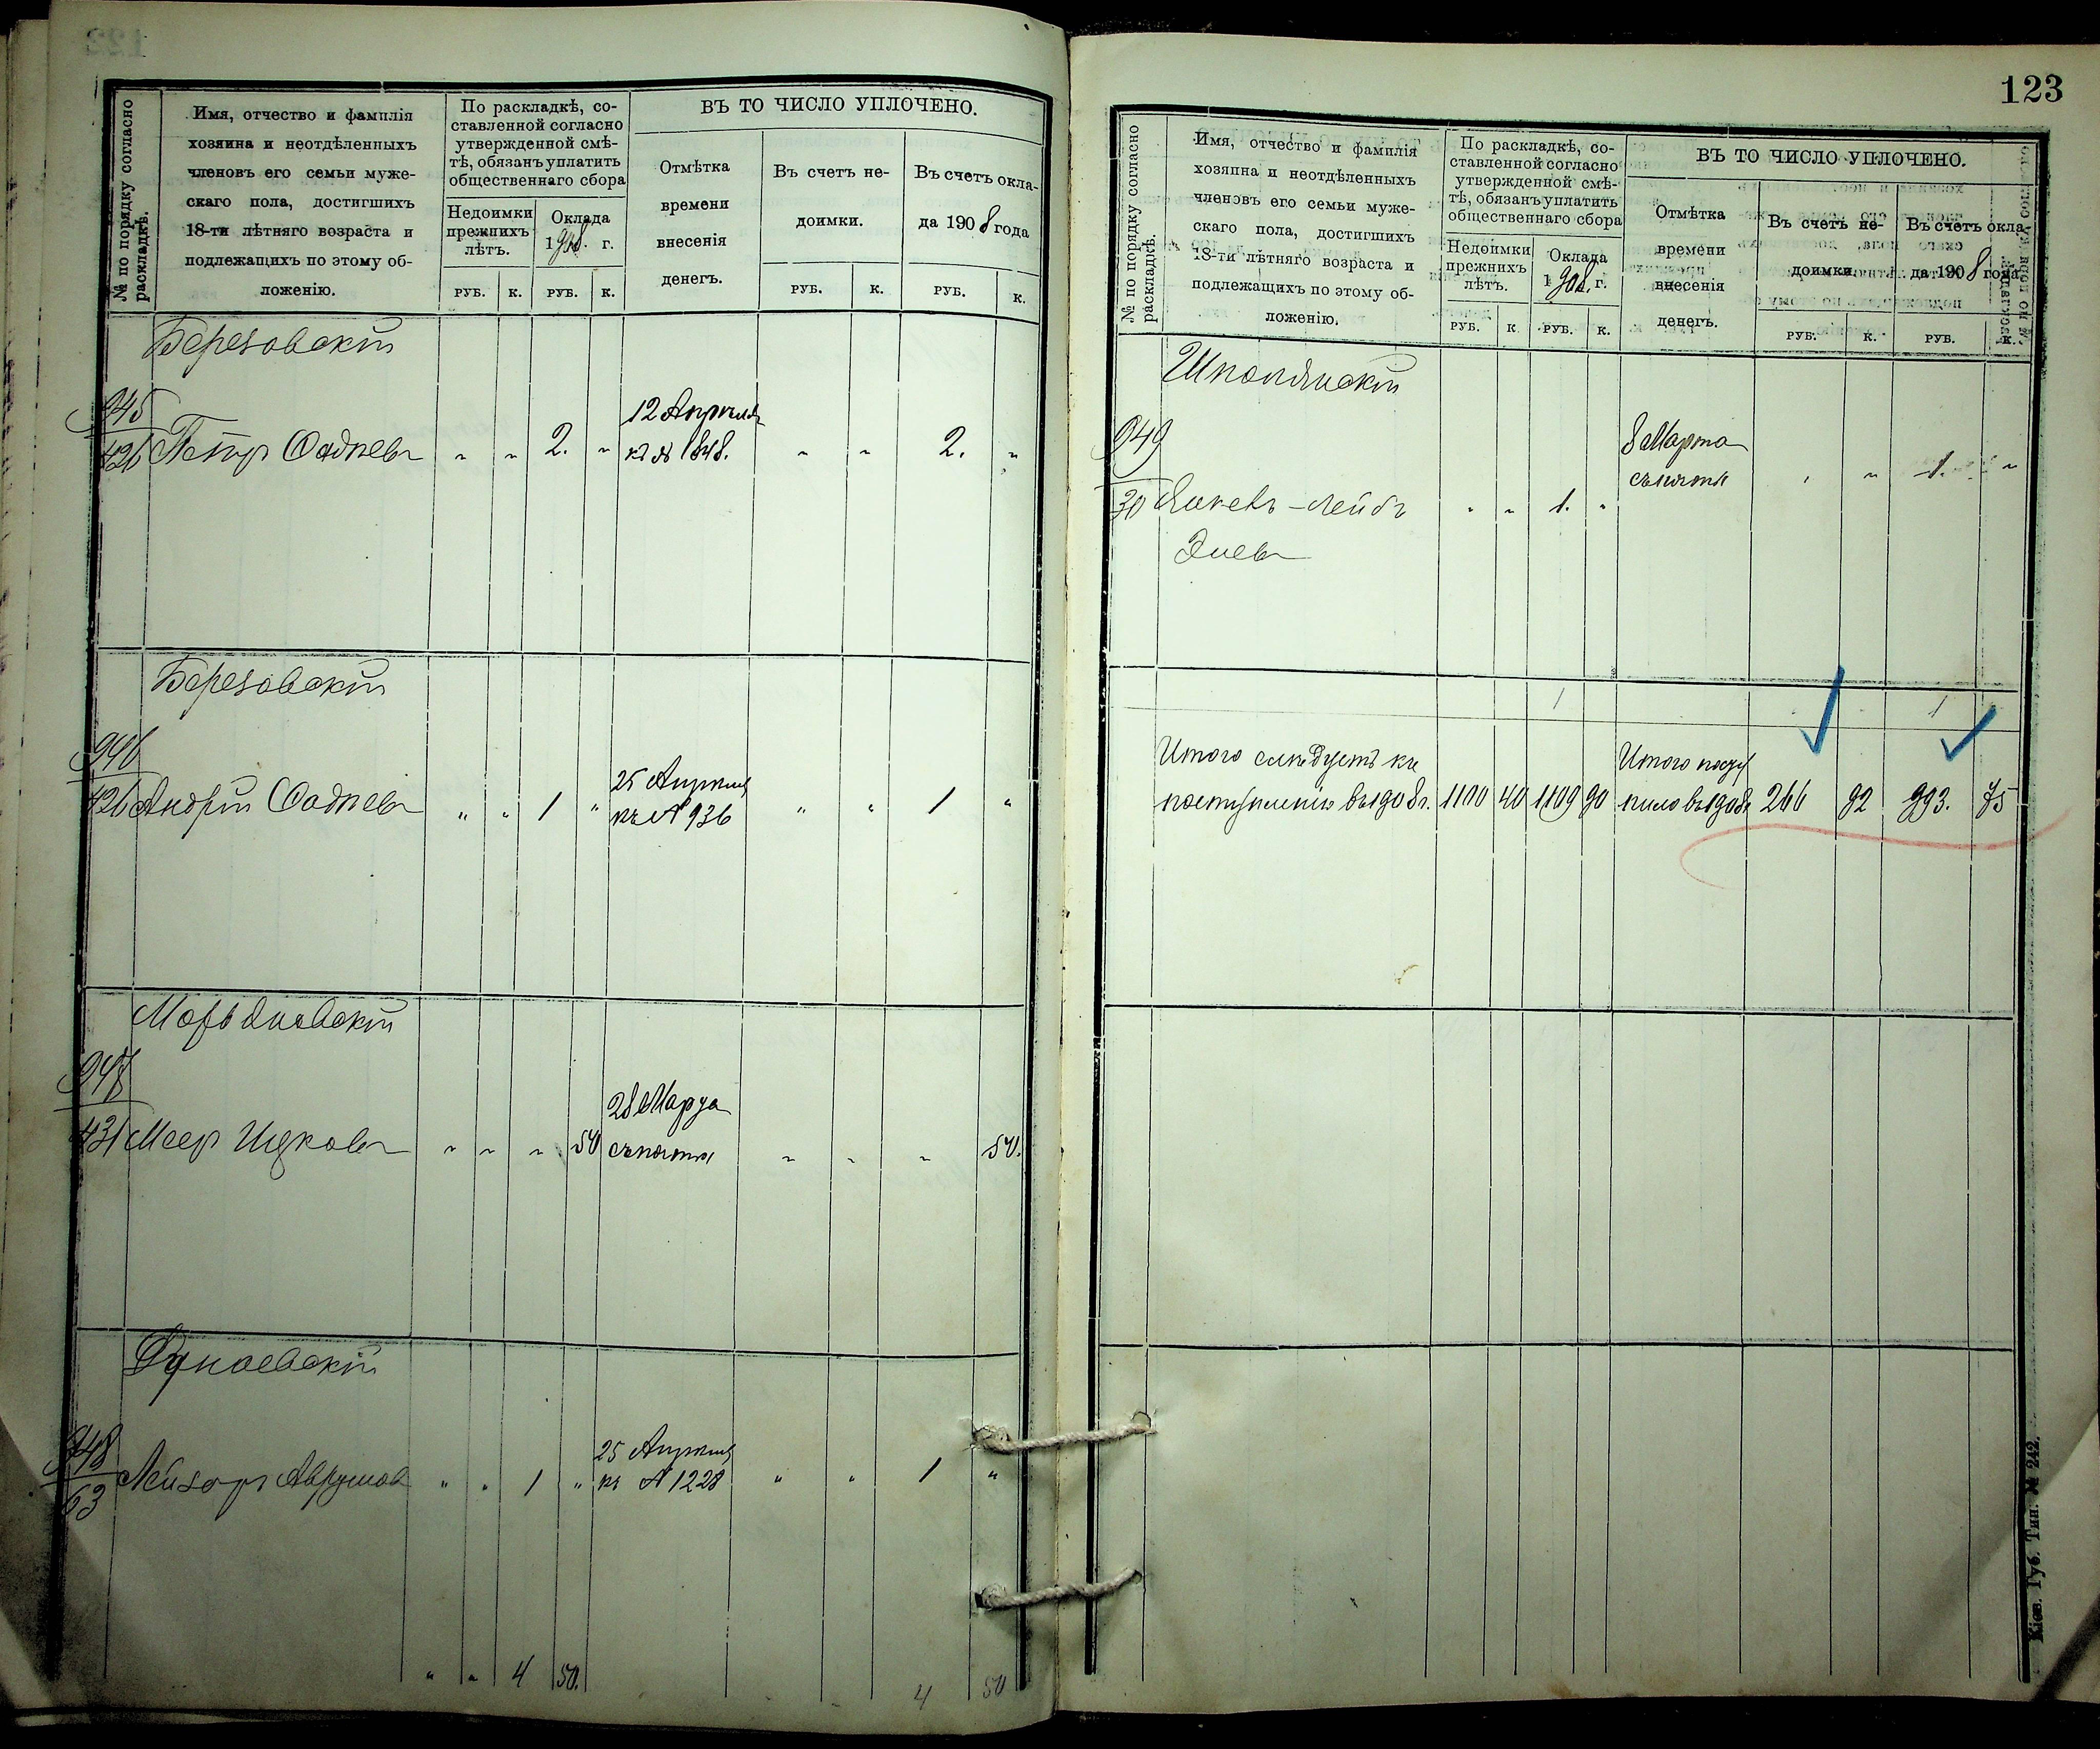 № по порядку согласно
раскладкѣ.
Имя, отчество и фамилія
хозяина и неотдѣленныхъ
членовъ его семьи муже-
скаго пола, достигшихъ
18-ти лѣтняго возраста и
подлежащихъ по этому об-
ложенію.
По раскладкѣ, со-
ставленной согласно
утвержденной смѣ-
тѣ, обязанъ уплатить
общественнаго сбора
Недоимки
прежнихъ
лѣтъ.
Оклада
1908. г.
РУБ. К. РУБ. К.
ВЪ ТО ЧИСЛО УПЛОЧЕНО.
Отмѣтка
времени
внесенія
денегъ.
Въ счетъ не-
доимки.
Въ счетъ окла-
да 1908 года
РУБ. К. РУБ. К.
Березовскій
945
426 Петръ Фадѣевъ " " 2. " 12 Апрѣля
къ № 1848. " " 2. "
Березовскій
946
426 Андрій Фадѣевъ " " 1 " 25 Апрѣля
къ № 936 " " 1 "
Марьяновскій
947
431 Меер Ицковъ " " " 50 28 Марта
съ почты " " " 50.
Дунаевскій
948
63 Лейзоръ Аврумов " " 1 " 25 Апрѣля
къ № 1228 " " 1 "
" " 4 50.
" " 4 50
123
№ по порядку согласно
раскладкѣ.
Имя, отчество и фамилія
хозяина и неотдѣленныхъ
членовъ его семьи муже-
скаго пола, достигшихъ
18-ти лѣтняго возраста и
подлежащихъ по этому об-
ложенію.
По раскладкѣ, со-
ставленной согласно
утвержденной смѣ-
тѣ, обязанъ уплатить
общественнаго сбора
Недоимки
прежнихъ
лѣтъ.
Оклада
1908. г.
РУБ. К. РУБ. К.
ВЪ ТО ЧИСЛО УПЛОЧЕНО.
Отмѣтка
времени
внесенія
денегъ.
Въ счетъ не-
доимки.
Въ счетъ окла-
да 1908 года
РУБ. К. РУБ. К.
Шполянскій
949
30 Янкель-Лейбъ " " 1. " 8 Марта
съ почты " " 1. "
Элев
1 1
Итого слѣдуетъ къ
поступленію въ 1908 г. 1100 40 1109 90
Итого посту
пило въ 1908 г. 266 92 993. 75
Кіев. Губ. Тип. № 242.